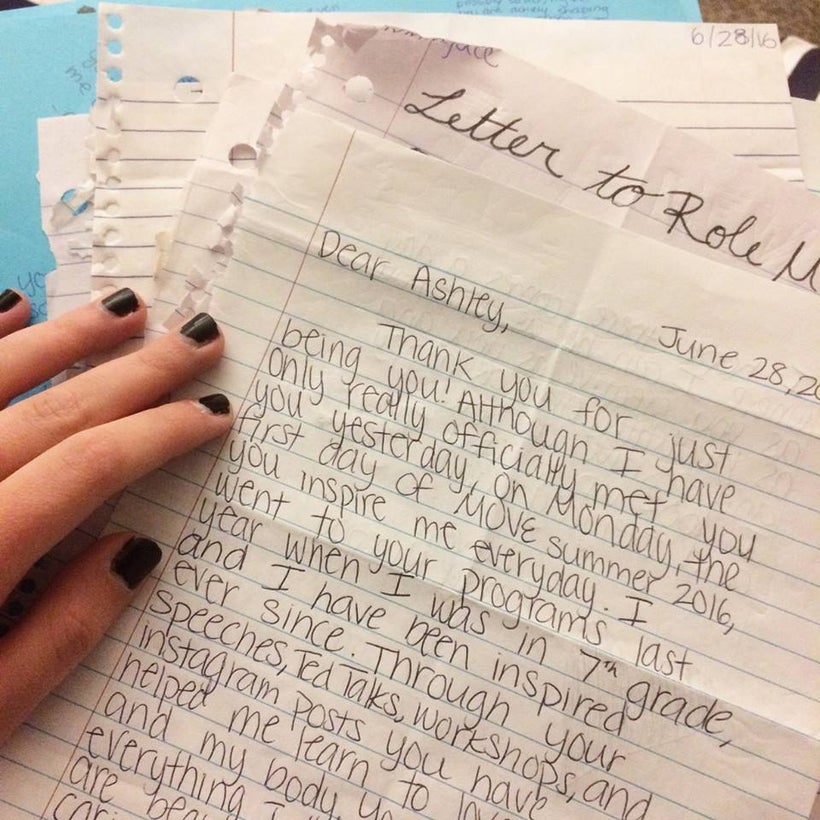 6/28/16
Letter to Role M
June 28, 20
Dear Ashley,
Thank you for just
being you! Although I have
only really officially met you
you yesterday, on Monday, the
first day of MOVE summer 2016,
you inspire me everyday. I
went to your programs last
year when I was in 7th grade,
and I have been inspired
ever since. Through your
speeches, Ted Talks, workshops, and
instagram posts you have
helped me learn to
and my body.
everything I
are